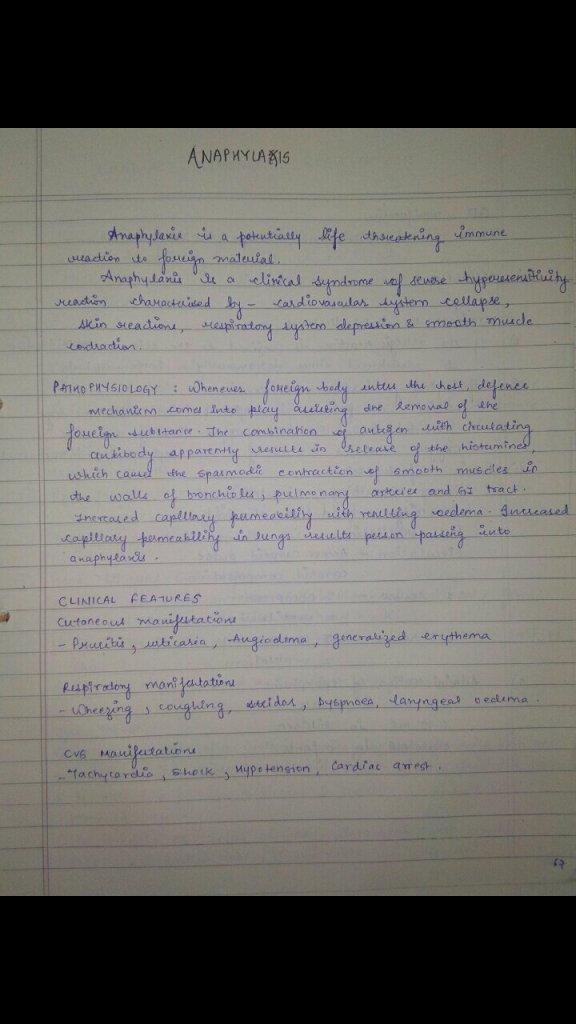 ANAPHYLAXIS
Anaphylaxis is a potentially life threatening immune
reaction to foreign material.
Anaphylaxis is a clinical syndrome of severe hypersensitivity
reaction characterised by - cardiovascular system collapse,
skin reactions, respiratory system depression & smooth muscle
contraction.
PATHOPHYSIOLOGY : Whenever foreign body enters the host, defence
mechanism comes into play assisting the removal of the
foreign substance. The combination of antigen with circulating
antibody apparently results in release of the histamines,
which causes the spasmodic contraction of smooth muscles in
the walls of bronchioles, pulmonary arteries and GI tract.
Increased capillary permeability with resulting oedema. Increased
capillary permeability in lungs results person passing into
anaphylaxis.
CLINICAL FEATURES
Cutaneous manifestations
- Pruritis, urticaria, Angiodema, generalized erythema
Respiratory manifestations
- Wheezing, coughing, stridor, Dyspnoea, laryngeal oedema
CVS Manifestations
- Tachycardia, Shock, Hypotension, Cardiac arrest.
67